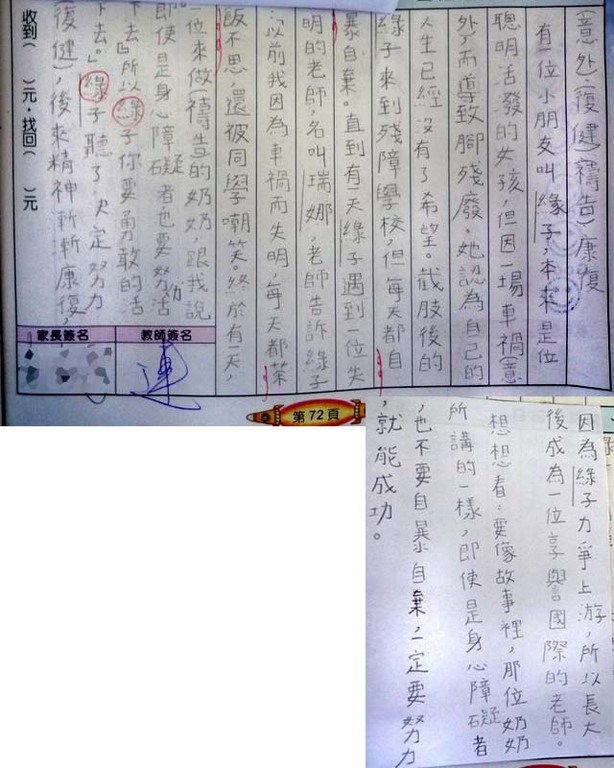 (意外)(復健)(禱告)康復
有一位小朋友叫緣子，本來是位
聰明活發的女孩，但因一場車禍(意
外)而導致腳殘廢。她認為自己的
人生已經沒有了希望。截肢後的
綠子來到殘障學校，但每天都自
暴自棄。直到有一天綠子遇到一位失
明的老師，名叫瑞娜，老師告訴綠子
：「以前我因為車禍而失明，每天都茶
飯不思，還被同學嘲笑。終於有一天，
一位來做(禱告)的奶奶，跟我說
即使是身心障礙者也要努力活
下去』所以綠子你要勇敢的活
下去。」綠子聽了，決定努力
復健)，後來精神漸漸康復，
收到( )元，找回( )元
家長簽名
教師簽名
連
第72頁
因為綠子力爭上游，所以長大
後成為一位享譽國際的老師。
想想看：要像故事裡，那位奶奶
所講的一樣，即使是身心障礙者
，也不要自暴自棄，一定要努力
，就能成功。